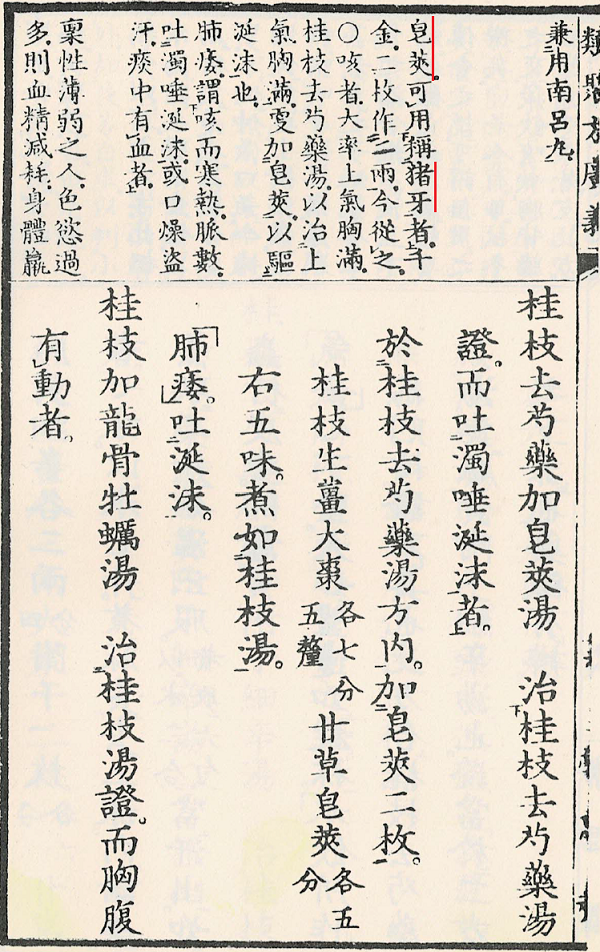 類聚方廣義
兼用南呂丸
皂莢可用稱猪牙者千
金二枚作一兩今從之
○咳者大率上氣胸滿
桂枝去芍藥湯以治上
氣胸滿更加皂莢以驅
涎沫也
肺痿謂咳而寒熱脈數
吐濁唾涎沫或口燥盜
汗痰中有血者
稟性薄弱之人色慾過
多則血精減耗身體羸
桂枝去芍藥加皂莢湯 治桂枝去芍藥湯
證而吐濁唾涎沫者
於桂枝去芍藥湯方內加皂莢二枚
桂枝生薑大棗各七分五釐甘草皂莢各五分
右五味煮如桂枝湯
「肺痿」吐涎沫
桂枝加龍骨牡蠣湯 治桂枝湯證而胸腹
有動者